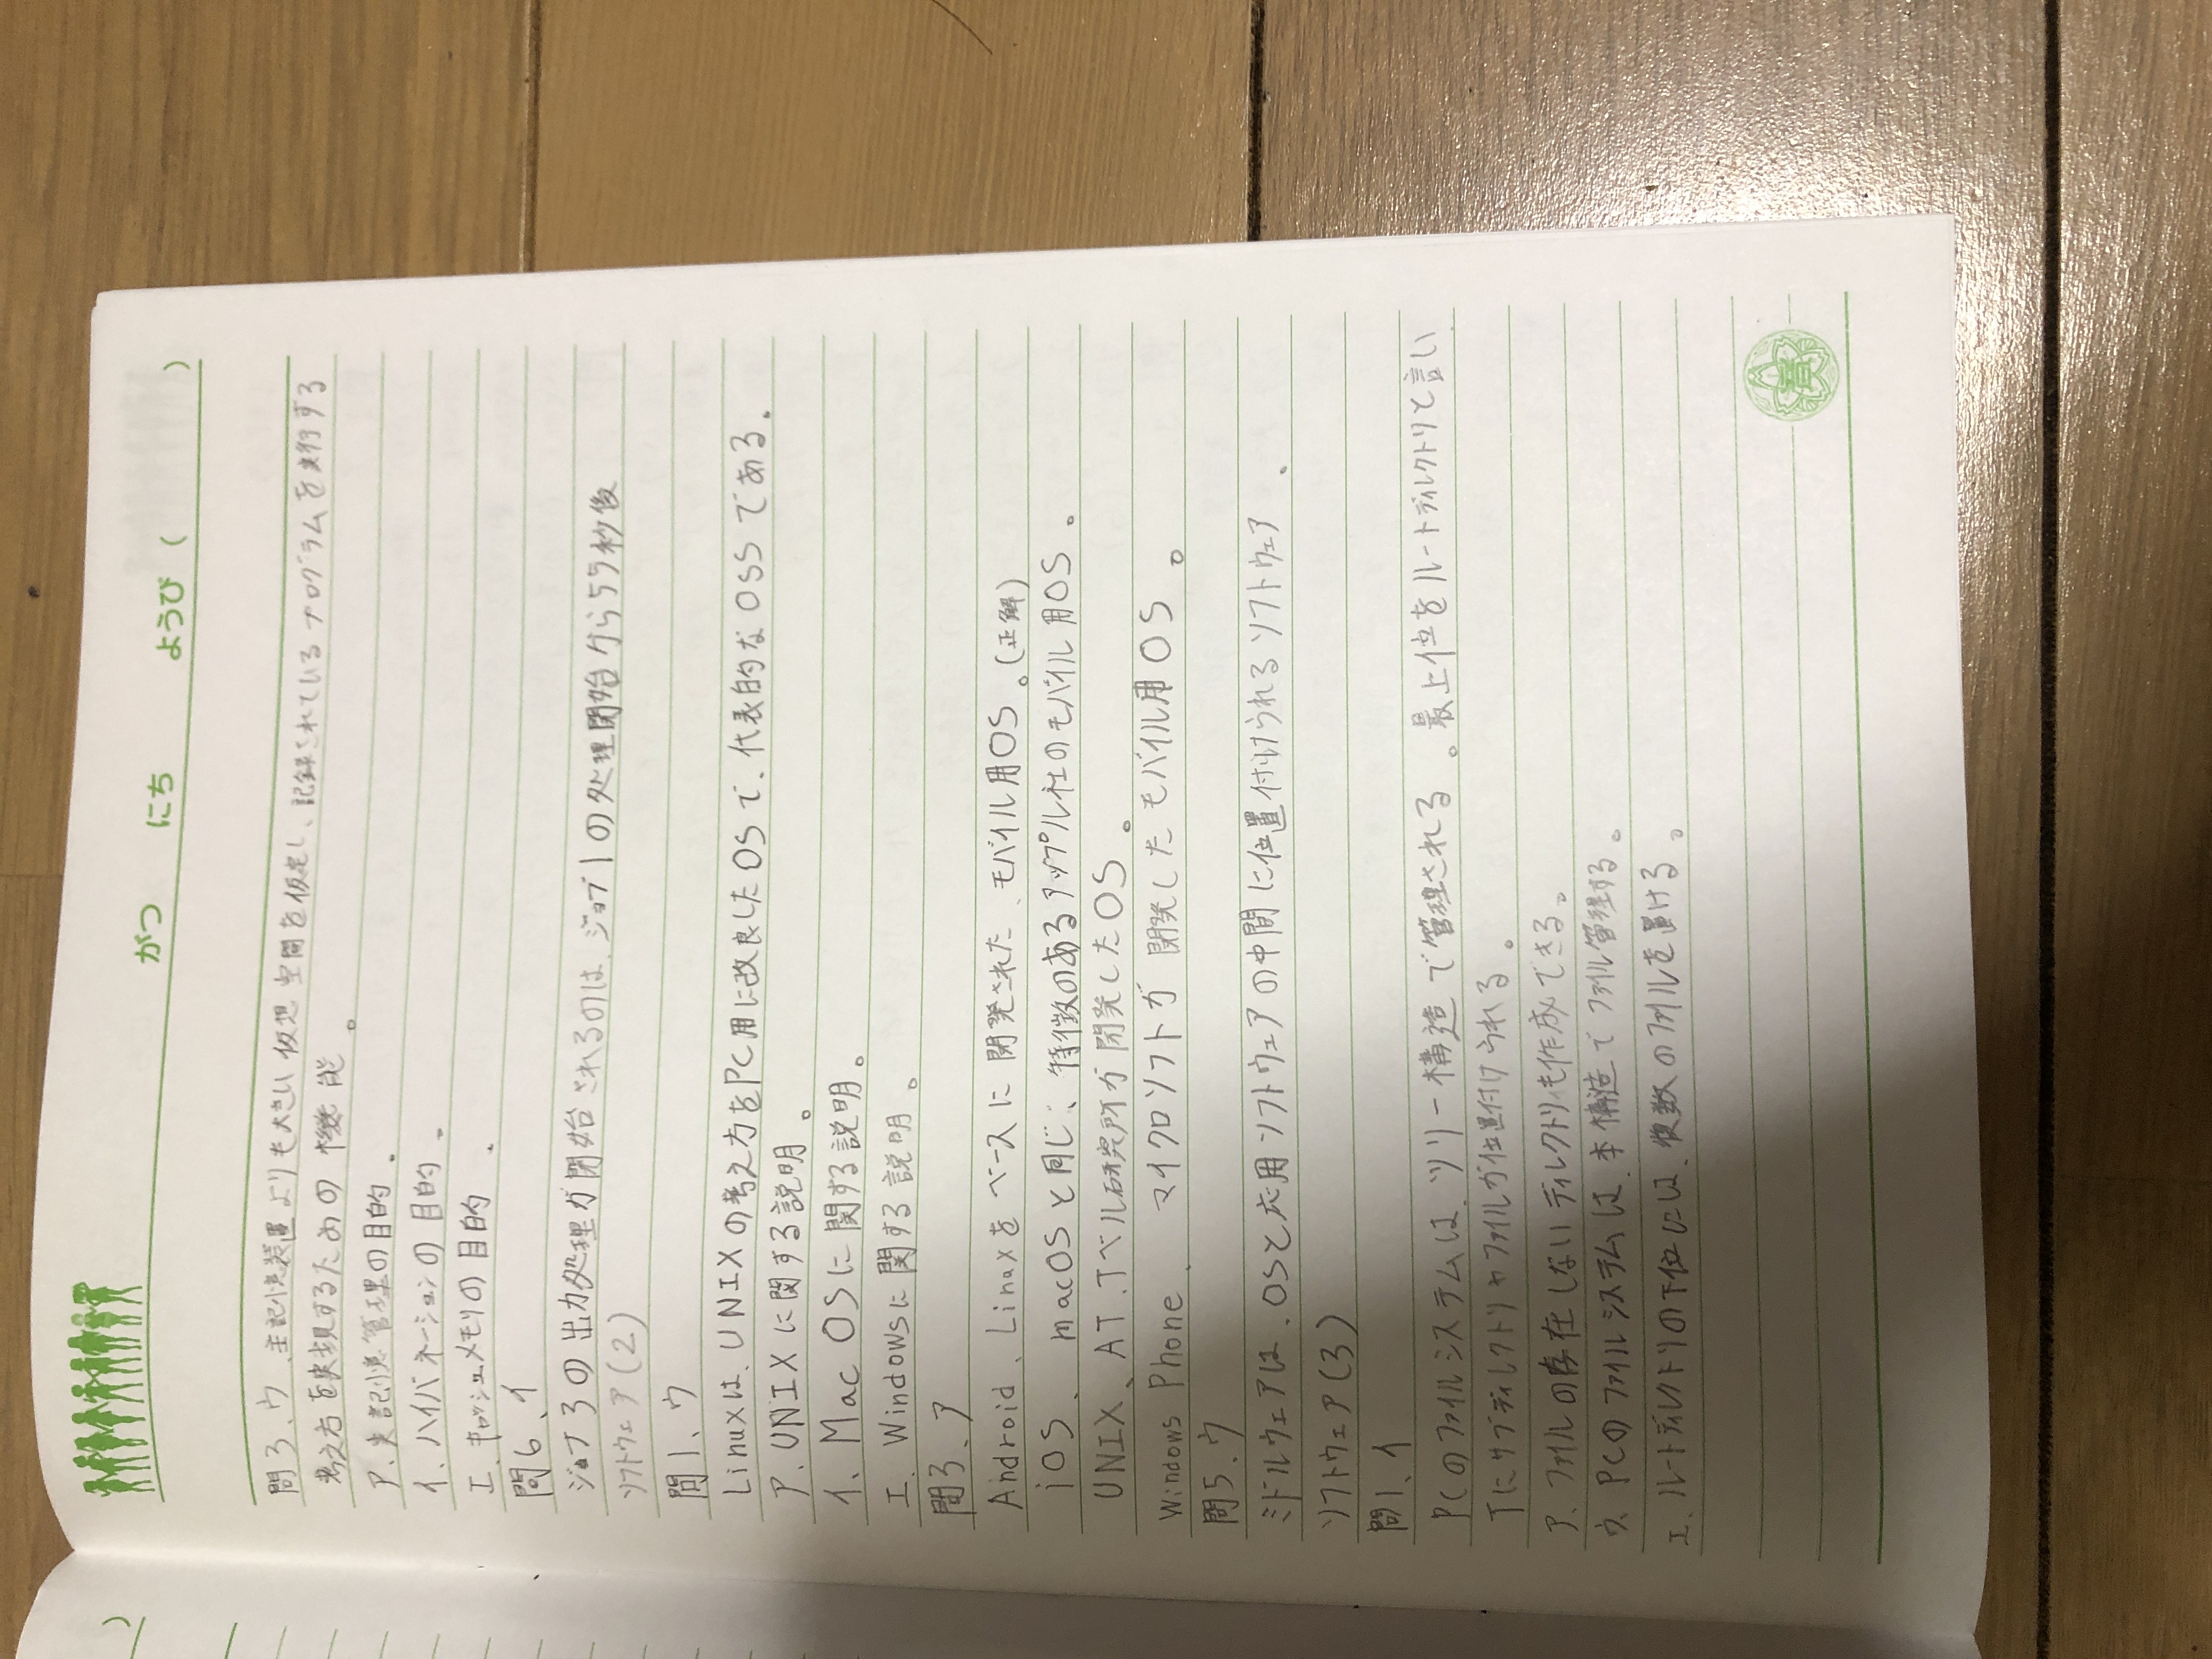 )
がつ にち ようび ( )
問3、ウ、主記憶装置よりも大きい仮想空間を仮定し、記録されているプログラムを実行する
考え方を実現するための機能。
ア、実記憶管理の目的。
イ、ハイバネーションの目的。
エ、キャッシュメモリの目的。
問6、イ
ジョブ3の出力処理が開始されるのは、ジョブ1の処理開始から55秒後
ソフトウェア(2)
問1、ウ
Linuxは、UNIXの考え方をPC用に改良したOSで、代表的なOSSである。
ア、UNIXに関する説明。
イ、Mac OSに関する説明。
エ、Windowsに関する説明。
問3、ア
Android、Linuxをベースに開発された、モバイル用OS。(正解)
iOS、macOSと同じ、特徴のあるアップル社のモバイル用OS。
UNIX、AT.Tベル研究所が開発したOS。
Windows Phone、マイクロソフトが開発したモバイル用OS。
問5、ウ
ミドルウェアは、OSと応用ソフトウェアの中間に位置付けられるソフトウェア、
ソフトウェア(3)
問1、イ
PCのファイルシステムは、ツリー構造で管理される。最上位をルートディレクトリと言い、
下にサブディレクトリやファイルが位置付けられる。
ア、ファイルの存在しないディレクトリも作成できる。
ウ、PCのファイルシステムは、木構造でファイル管理する。
エ、ルートディレクトリの下位には、複数のファイルを置ける。
音